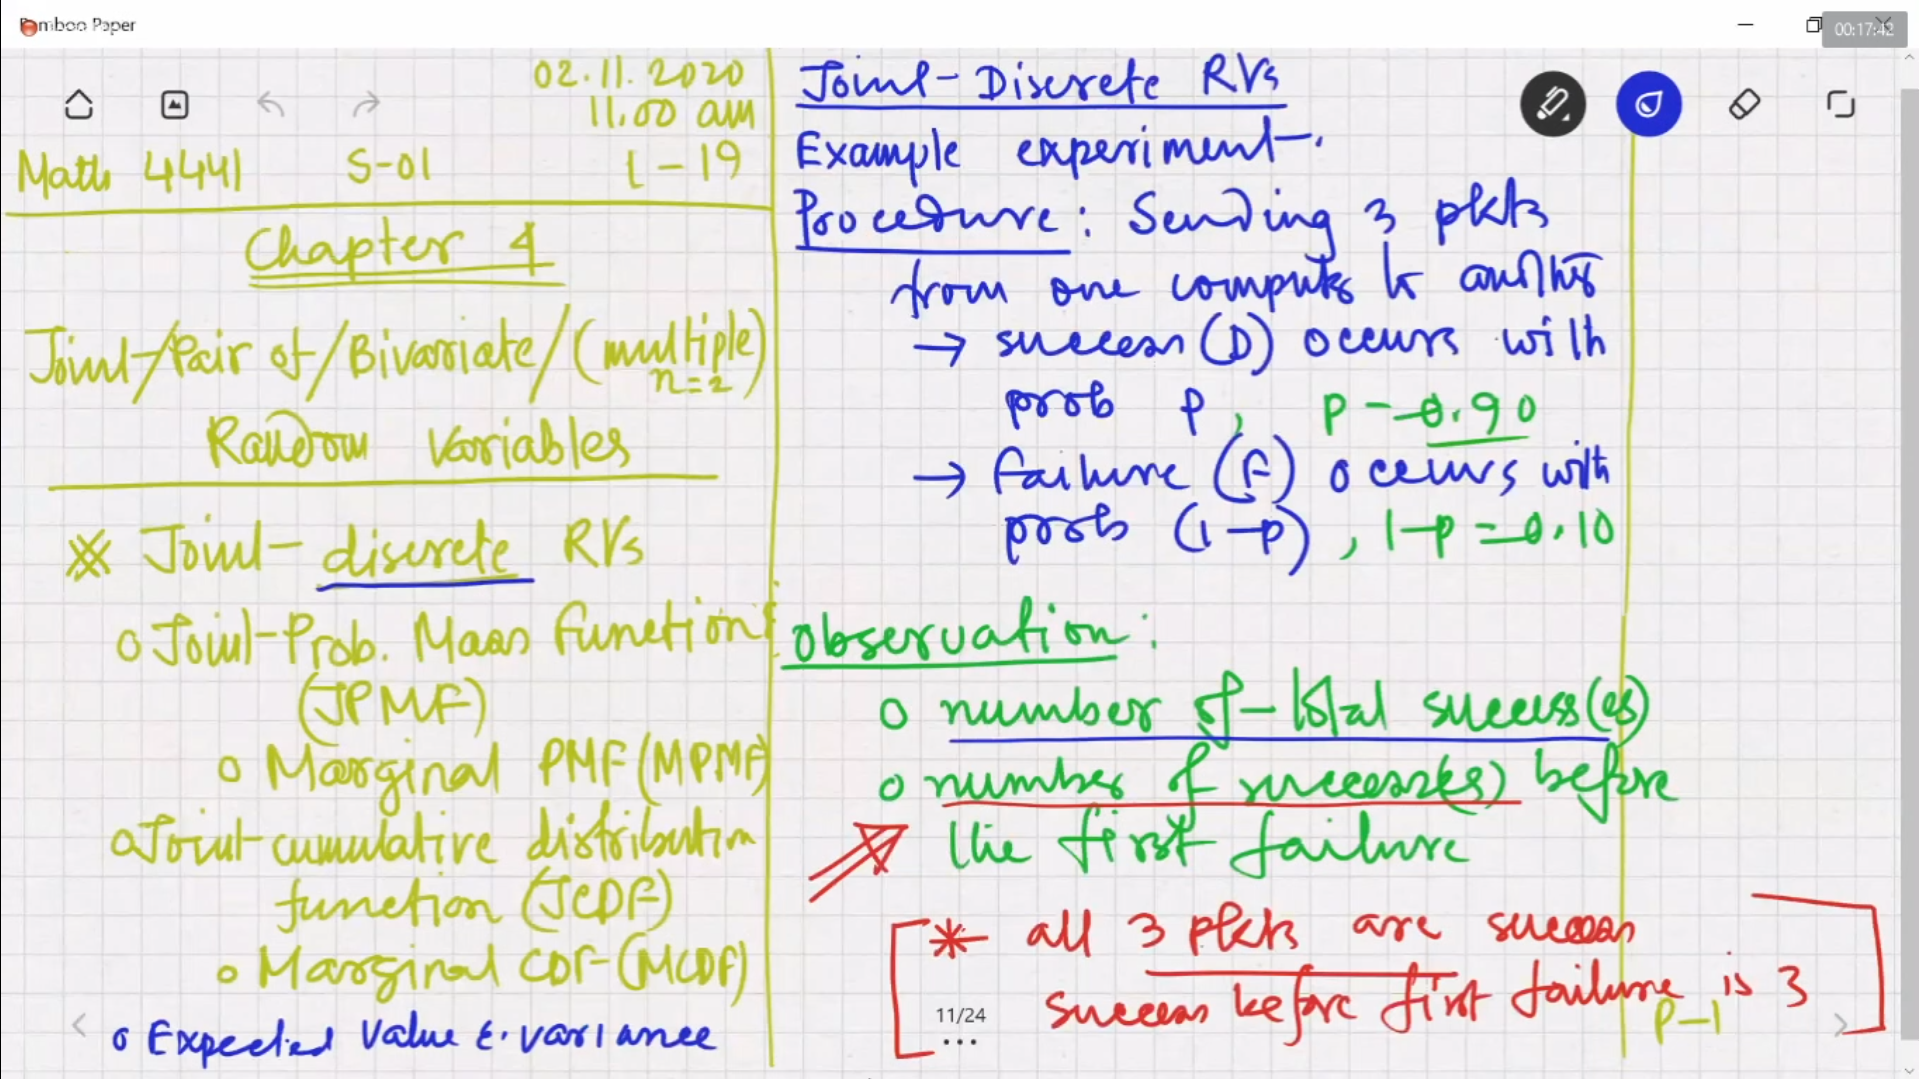 Bamboo Paper
00:17:42
02.11.2020
11.00 am
Math 4441 S-01 L-19
Chapter 4
Joint/Pair of/Bivariate/(multiple)
n=2
Random Variables
※ Joint discrete RVs
o Joint Prob. Mass Function
(JPMF)
o Marginal PMF (MPMF)
o Joint cumulative distribution
function (JCDF)
o Marginal CDF (MCDF)
o Expected Value & variance
Joint Discrete RVs
Example experiment.
Procedure: Sending 3 pkts
from one computer to another
→ success (D) occurs with
prob p, p = 0.90
→ failure (F) occurs with
prob (1-p), 1-p = 0.10
Observation:
o number of total success(es)
o number of success(es) before
the first failure
* all 3 pkts are success
success before first failure is 3
P-1
11/24